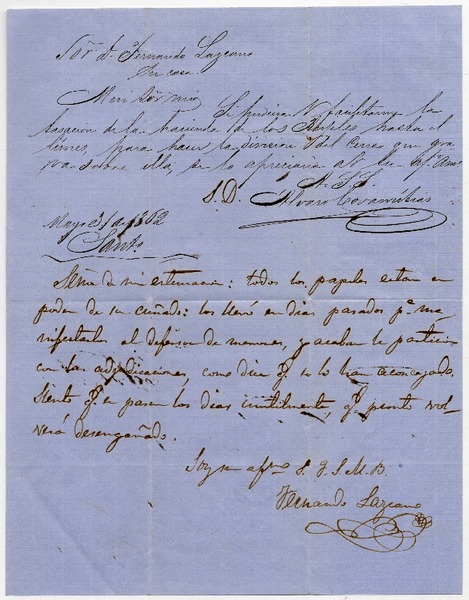 Sor dn Fernando Lazcano
Su casa
Mui Sor mio
Se pudiera V facilitarme la
tasacion de la hacienda de los Perales hasta el
lúnes, para hacer la division del Censo que gra
va sobre ella, se lo apreciaria
S. D. Alvaro Covarrubias
Mayo 31 de 1862
Santo
Señor de mi estimacion: todos los papeles estan en
poder de su cuñado: los llevó en dias pasados pa ma
nifestarlos al defensor de menores, y acaban la particion
con las adjudicaciones, como dicen qe se lo han aconsejado.
Siento qe se pasen los dias inutilmente, qe pronto vol
verá desengañado.
Soy su afmo S. q. S. M. B.
Fernando Lazcano